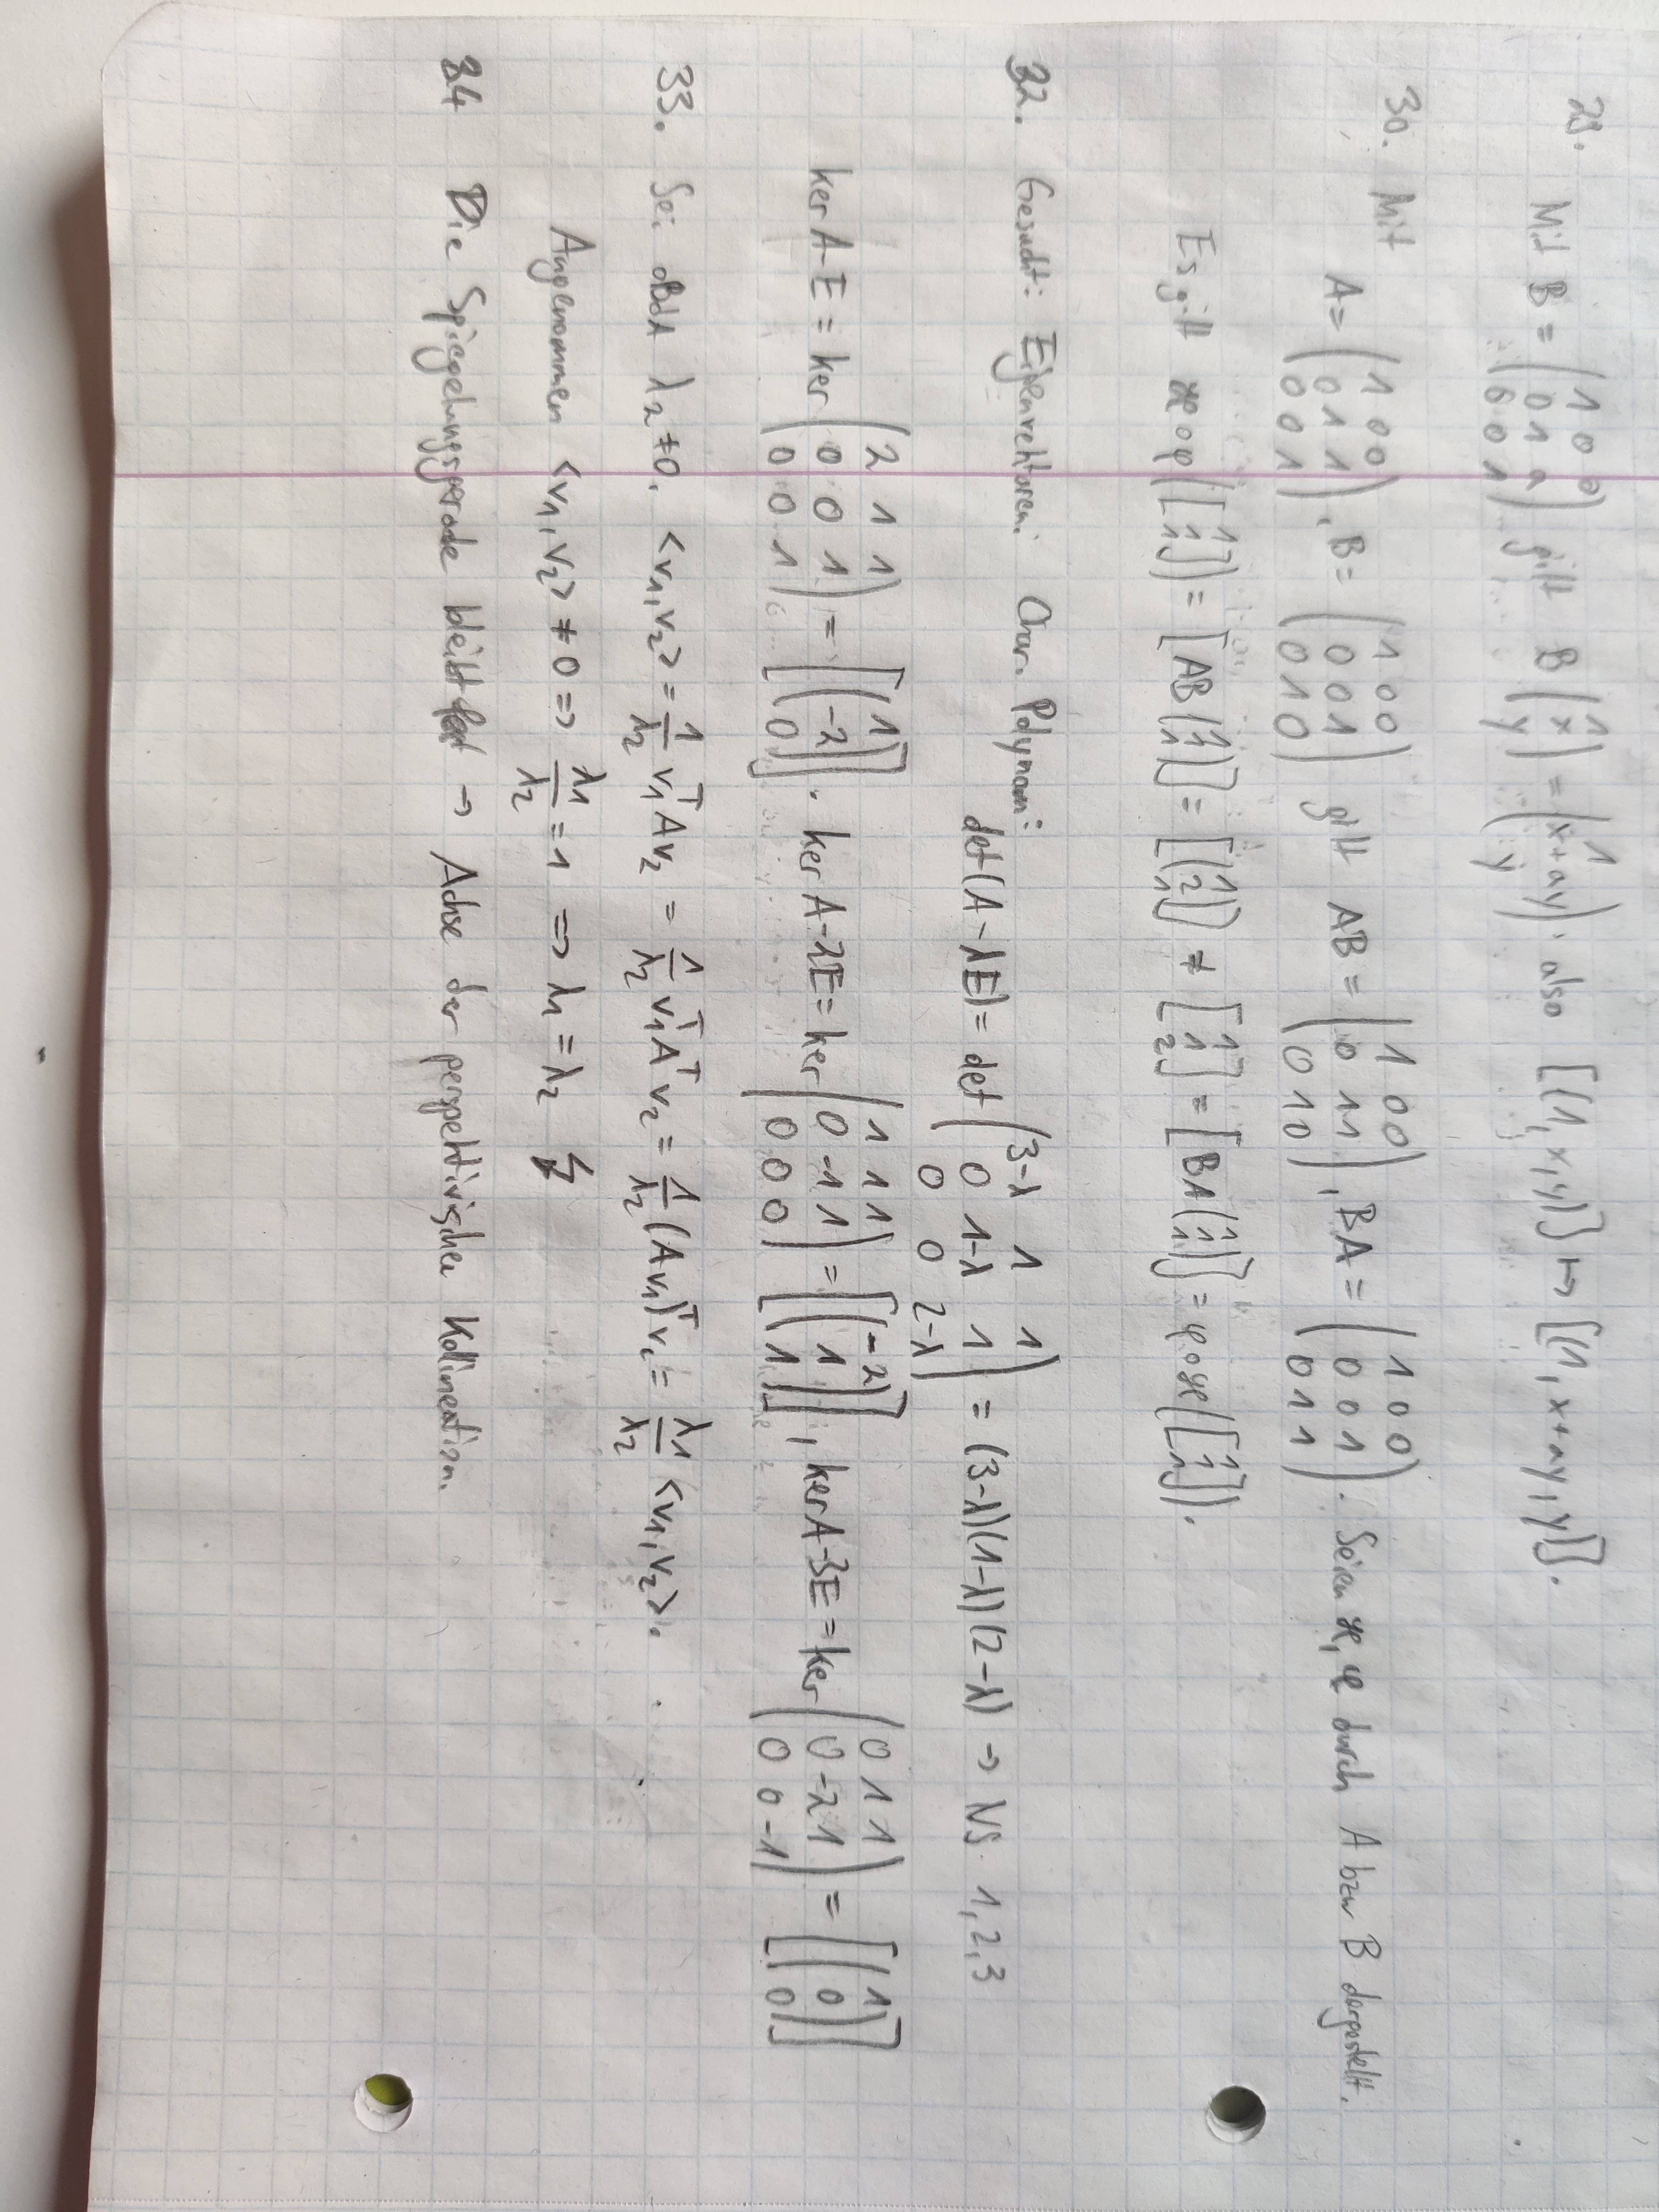 29. Mit B = (1 0 0 / 0 1 a / 0 0 1) gilt B (1 / x / y) = (1 / x+ay / y), also [(1, x, y)] ↦ [(1, x+ay, y)].
30. Mit A = (1 0 0 / 0 1 1 / 0 0 1), B = (1 0 0 / 0 0 1 / 0 1 0) gilt AB = (1 0 0 / 0 1 1 / 0 1 0), BA = (1 0 0 / 0 0 1 / 0 1 1). Seien ϰ, φ durch A bzw B dargestellt.
Es gilt ϰ∘φ([1 / 1 / 1]) = [AB (1 / 1 / 1)] = [(1 / 2 / 1)] ≠ [1 / 1 / 2] = [BA (1 / 1 / 1)] = φ∘ϰ([1 / 1 / 1]).
32. Gesucht: Eigenvektoren: Char. Polynom:
det(A-λE) = det (3-λ 1 1 / 0 1-λ 1 / 0 0 2-λ) = (3-λ)(1-λ)(2-λ) → NS 1,2,3
ker A-E = ker (2 1 1 / 0 0 1 / 0 0 1) = [(1 / -2 / 0)]. ker A-2E = ker (1 1 1 / 0 -1 1 / 0 0 0) = [(-2 / 1 / 1)], ker A-3E = ker (0 1 1 / 0 -2 1 / 0 0 -1) = [(1 / 0 / 0)]
33. Sei oBdA λ₂ ≠ 0. <v₁,v₂> = 1/λ₂ v₁ᵀAv₂ = 1/λ₂ v₁ᵀAᵀv₂ = 1/λ₂ (Av₁)ᵀv₂ = λ₁/λ₂ <v₁,v₂>.
Angenommen <v₁,v₂> ≠ 0 => λ₁/λ₂ = 1 => λ₁ = λ₂ ↯
34 Die Spiegelungsgerade bleibt fest → Achse der perspektivischen Kollineation.